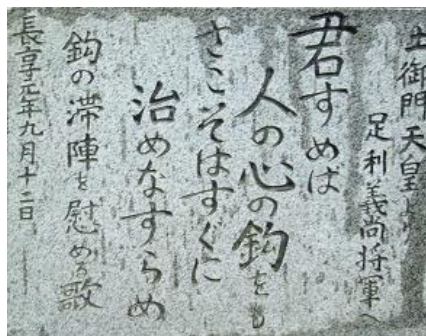 土御門天皇より
足利義尚将軍へ
君すめば
人の心の鈎をも
さこそはすぐに
治めなすらめ
鈎の滞陣を慰める歌
長享元年九月十二日